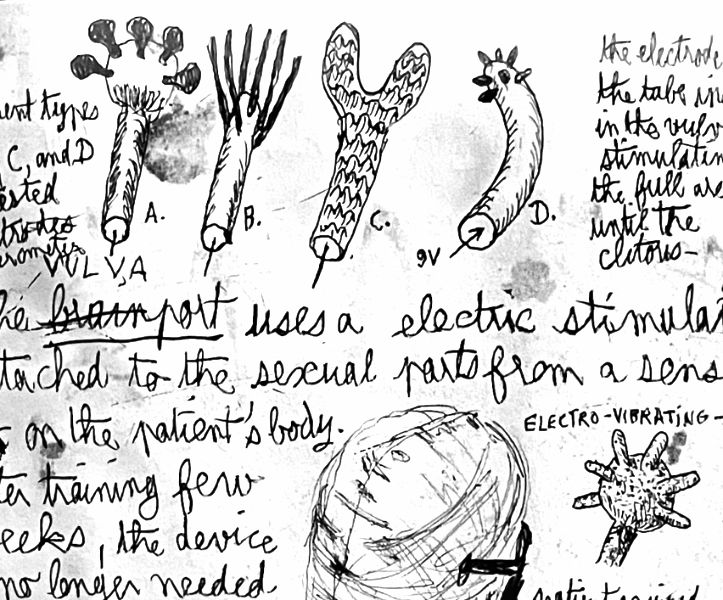 ent types
C, and D
ested
A.
B.
C.
D.
VVLVA
9V
the electrode
the tabs in
in the vulv
stimulatin
the full are
until the
clitoris-
he brainport uses a electric stimulat
tached to the sexual parts from a sens
on the patient's body.
ELECTRO-VIBRATING-
ter training few
eeks, the device
no longer needed